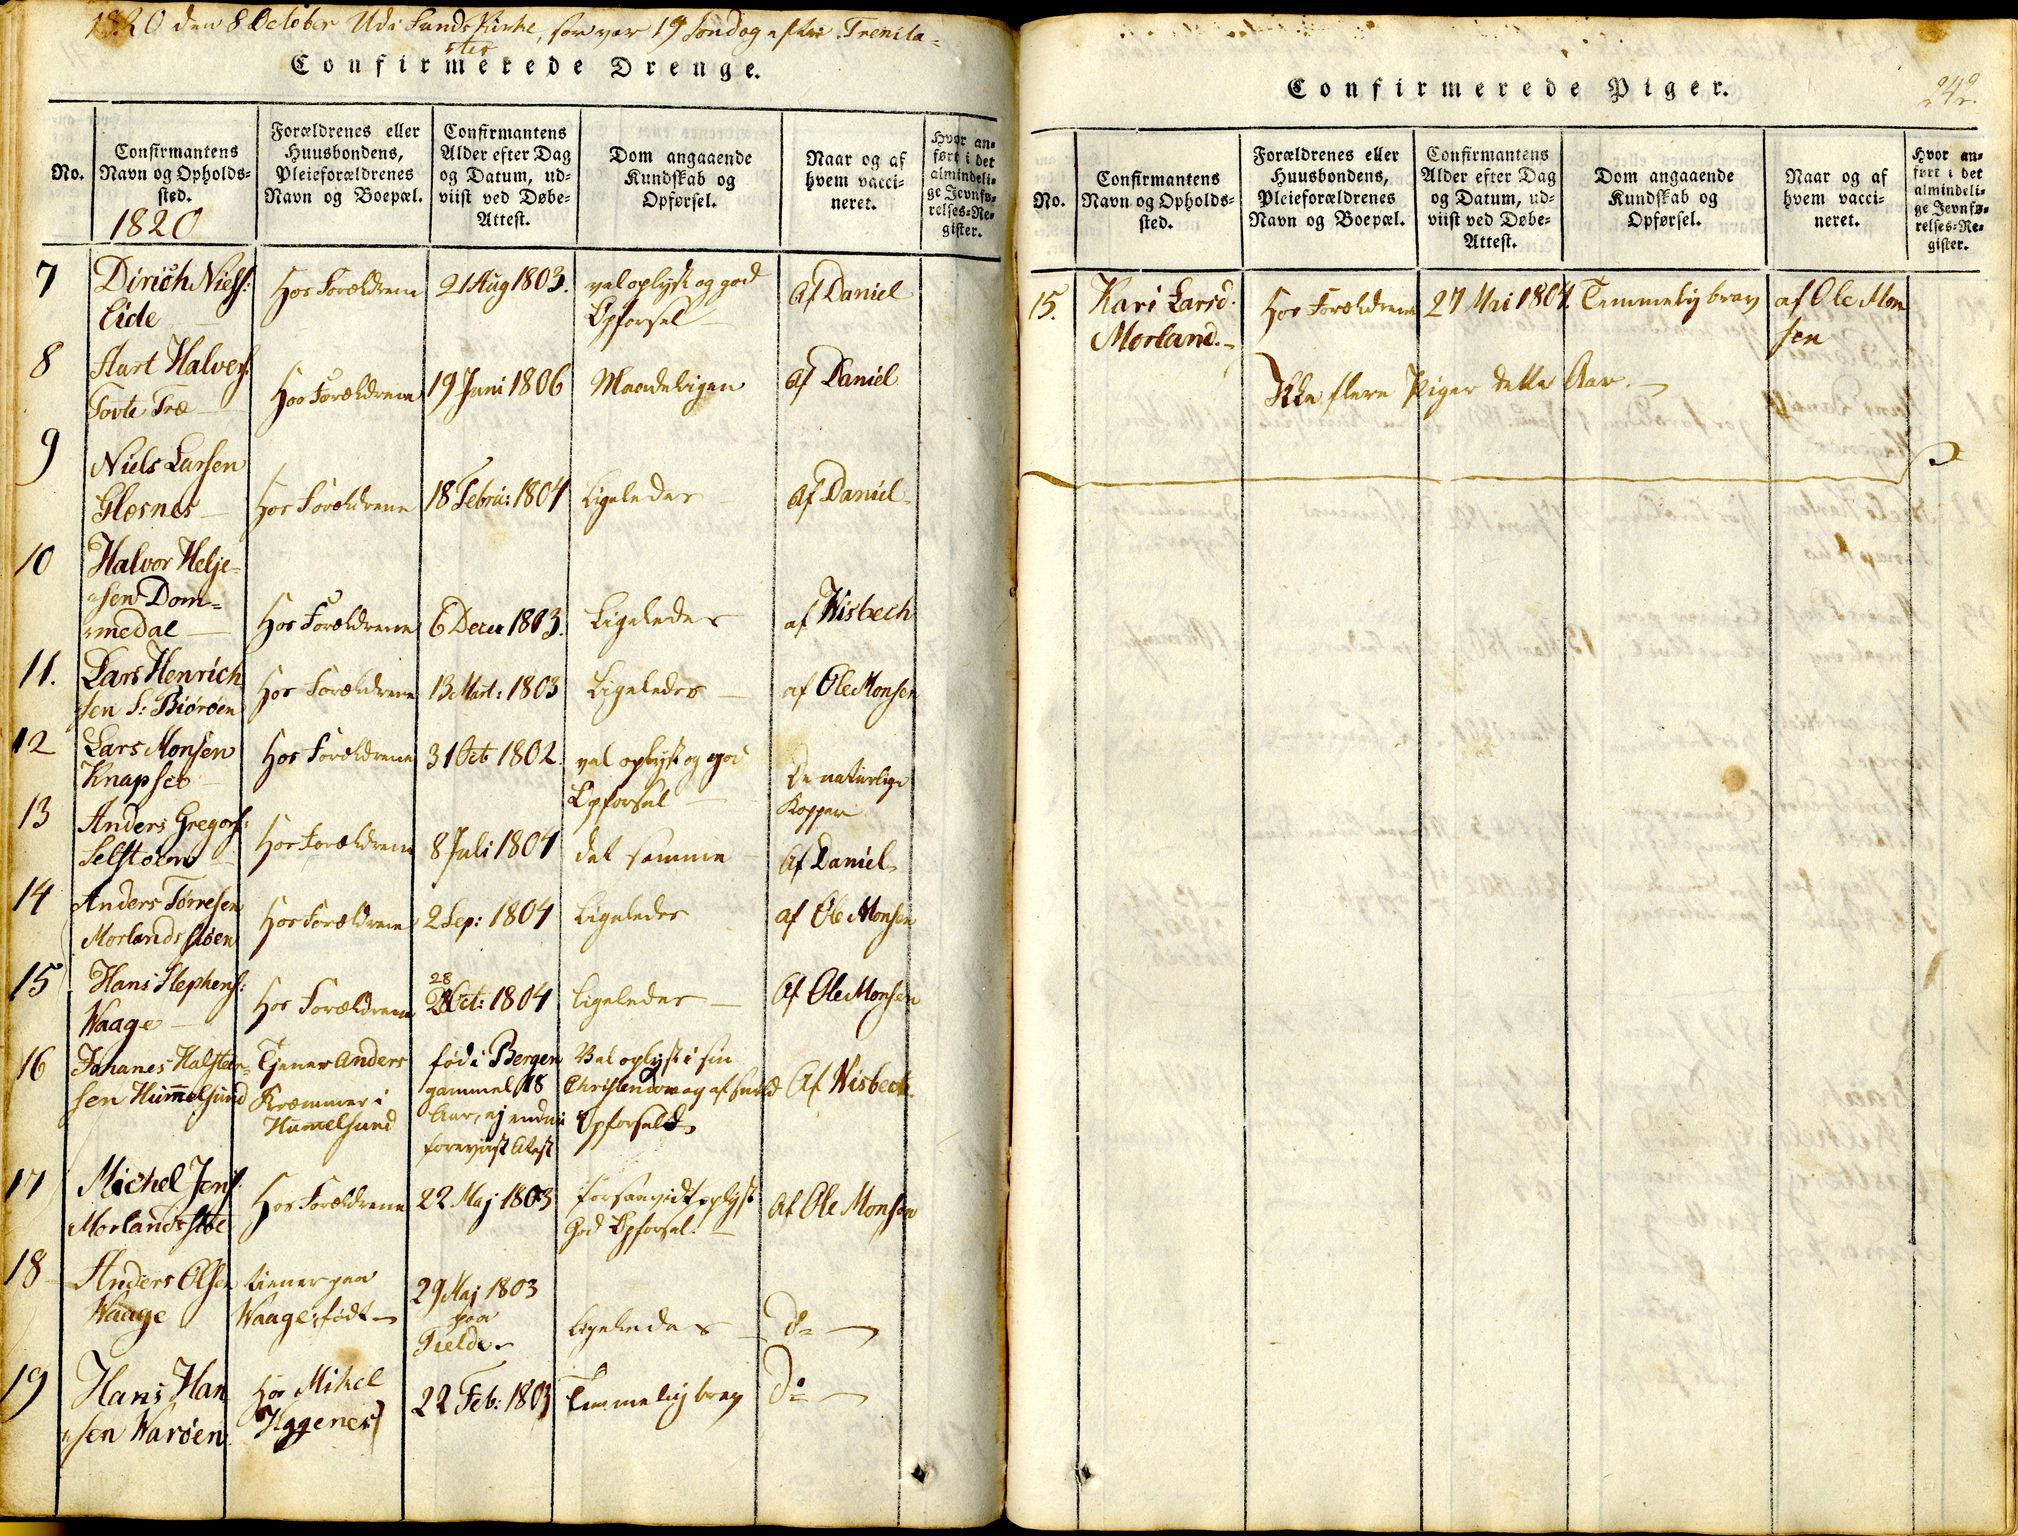 1820 den 8 October Udi Sunds Kirke, som var 19 Søndag efter Trenita=
stis
Confirmerede Drenge.
No.
Confirmantens
Navn og Opholds-
sted.
1820
Forældrenes eller
Huusbondens,
Pleieforældrenes
Navn og Boepæl.
Confirmantens
Alder efter Dag
og Datum, ud-
viist ved Døbe-
Attest.
Dom angaaende
Kundskab og
Opførsel.
Naar og af
hvem vacci-
neret.
Hvor an-
ført i det
almindeli-
ge Jevnfø-
relses-Re-
gister.
7 Dirich Niels: Hos Forældrene 21 Aug 1803. vel oplyst og god af Daniel
Eide Opførsel
8 Aart Halvers: Hos Forældrene 19 Juni 1806 Maadeligen af Daniel
Tofte Træ
9 Niels Larsen
Glesnes Hos Forældrene 18 Febru: 1804 Ligeledes af Daniel
10 Halvor Helje-
sen Dom=
medal Hos Forældrene 6 Decr 1803. Ligeledes af Wisbech
11. Lars Henrich Hos Forældrene 13 Mart: 1803 Ligeledes af Ole Monsen
sen S: Biørøen
12 Lars Monsen Hos Forældrene 31 Oct 1802. vel oplyst og god De naturlige
Knapsco Opførsel Kopper
13 Anders Gregors: Hos Forældrene 8 Juli 1804 det samme af Daniel
Selstøen
14 Anders Tørresen Hos Forældrene 2 Sep: 1804 Ligeledes af Ole Monsen
Morlandsstøen
15 Hans Stephens: Hos Forældrene 28 Oct: 1804 Ligeledes Af Ole Monsen
Waage
16 Johanes Halstæn= Tjener Anders fød i Bergen Vel oplyst i sin
sen Hummelsund Kræmmer i gammel 18 Christendom og af Af Wisbech
Hummelsund Aar, ej endnu Opførsel
foreviist Atest
17 Michel Jens: Hos Forældrene 22 Maj 1803 forsaavidt oplyst Af Ole Monsen
Morlandsstøe God Opførsel.
18 Anders Olsen tiener paa 29 Maj 1803
Waage Waage, født paa Ligeledes do
Fielde
19 Hans Han Hos Mikel 22 Feb: 1803 Temmelig brav do
sen Warøen Haggenes
Confirmerede Piger.
242.
No.
Confirmantens
Navn og Opholds-
sted.
Forældrenes eller
Huusbondens,
Pleieforældrenes
Navn og Boepæl.
Confirmantens
Alder efter Dag
og Datum, ud-
viist ved Døbe-
Attest.
Dom angaaende
Kundskab og
Opførsel.
Naar og af
hvem vacci-
neret.
Hvor an-
ført i det
almindeli-
ge Jevnfø-
relses-Re-
gister.
15. Kari Larsd: Hos Forældrene 27 Mai 1804. Temmelig brav af Ole Mon
Morland. sen
Ikke flere Piger dette Aar.